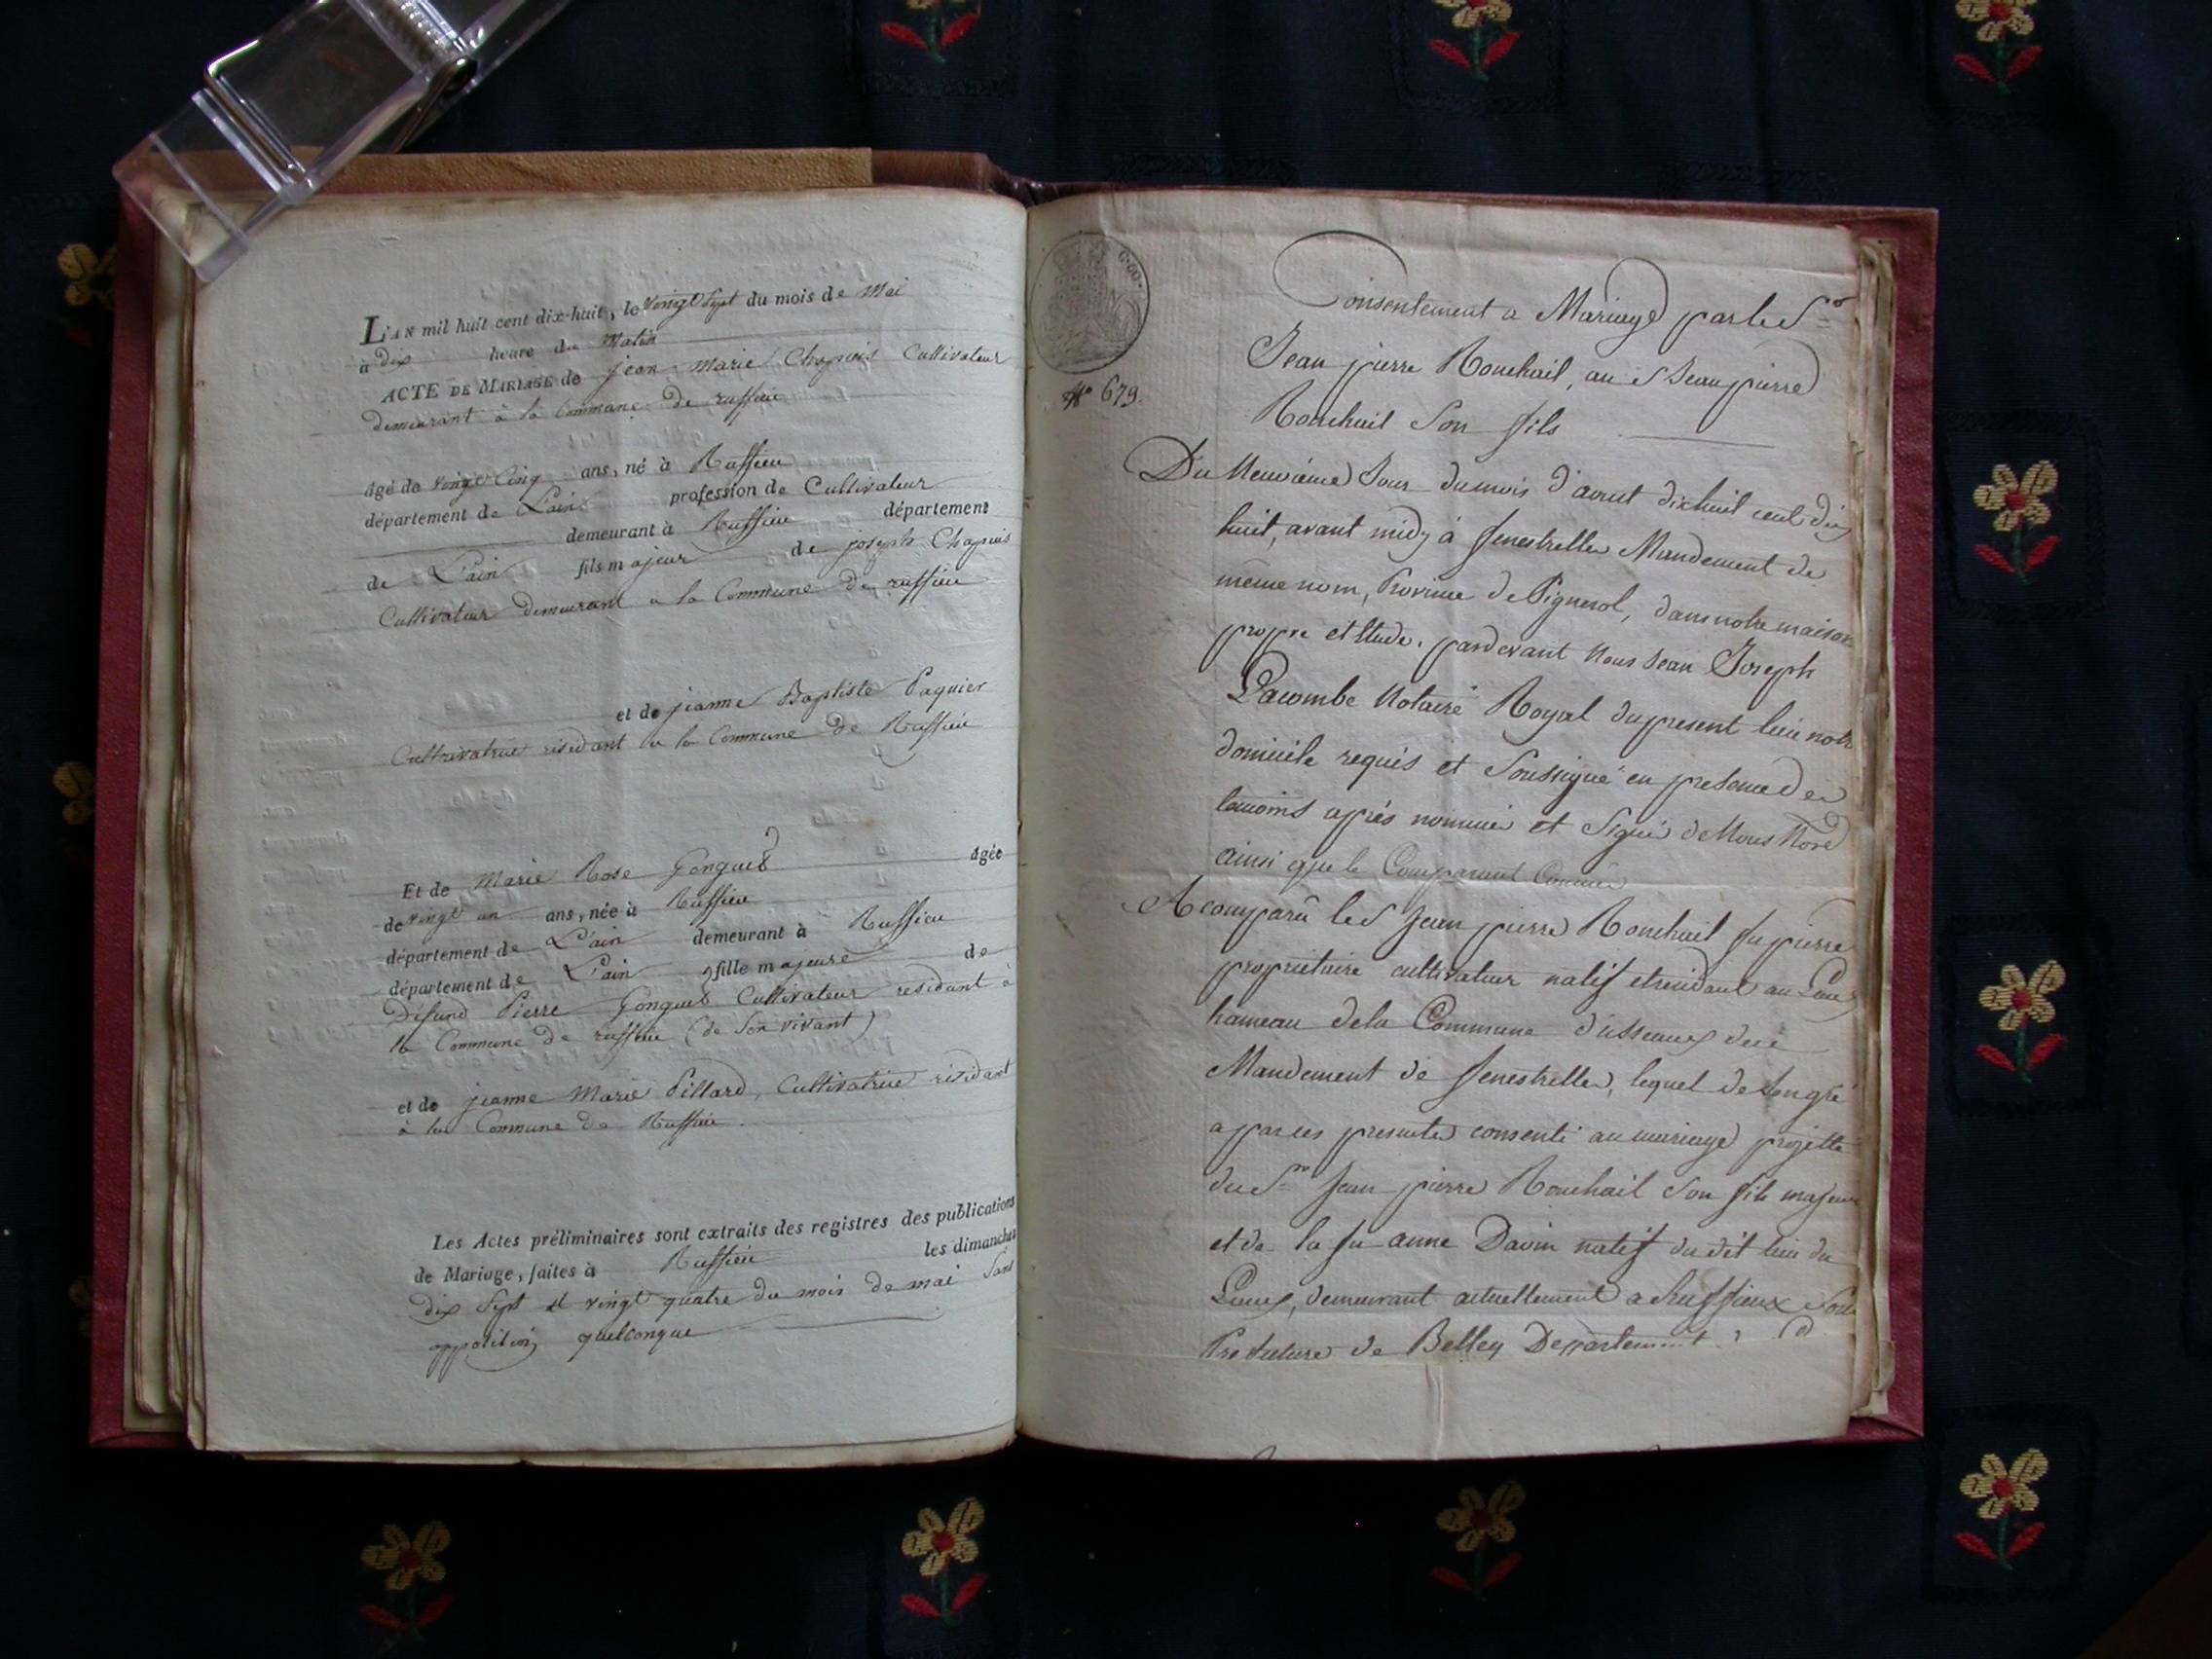 L'AN mil huit cent dix-huit, le vingt Sept du mois de Mai
à dix heure du Matin
ACTE DE MARIAGE de jean marie Chapuis Cultivateur
demeurant à la Commune de ruffieu
agé de vingt Cinq ans, né à Ruffieu
département de L'ain profession de Cultivateur
demeurant à Ruffieu département
de L'ain fils majeur de joseph Chapuis
Cultivateur demeurant a la Commune de ruffieu
et de jeanne Baptiste Paquier
Cultivatrice residant a la Commune de Ruffieu
Et de Marie Rose Gonguet agée
de vingt un ans, née à Ruffieu
département de L'ain demeurant à Ruffieu
département de L'ain fille majeure de
Defund Pierre Gonguet Cultivateur residant à
la Commune de ruffieu (de Son vivant)
et de jeanne Marie Pillard, Cultivatrice residant
à la Commune de Ruffieu.
Les Actes préliminaires sont extraits des registres des publications
de Mariage, faites à Ruffieu les dimanches
dix Sept et vingt quatre du mois de mai Sans
opposition quelconque
Consentement a Mariage par le Sr
Jean pierre Rouchail, au S Jean pierre
Rouchail Son fils
N° 679.
Du Neuvième Jour du mois d'avril dix huit cent dix
huit, avant midy à fenestrelles Mandement de
même nom, Province de Pignerol, dans notre maison
propre et Etude. pardevant Nous Jean Joseph
Lacombe Notaire Royal du present lieu notre
domicile requis et Soussigné en presence des
temoins après nommés et Signés de Nous Nore
ainsi que le Comparant Connu
A comparû le S Jean pierre Rouchail fu pierre
proprietaire cultivateur natif et residant au Laux
hameau de la Commune d'usseaux dud
Mandement de fenestrelles, lequel de Son gré
a par ces presentes consenti au mariage projetté
du Sr Jean pierre Rouchail Son fils majeur
et de la fu anne Davin natif du dit lieu du
Laux, demeurant actuellement a Ruffieux Sous
Prefecture de Belley Departement